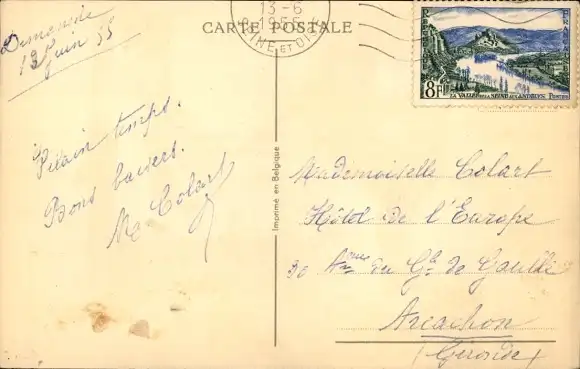 Dimanche
12 Juin 55
CARTE POSTALE
13-6
1955
SEINE ET OISE
8F
LA VALLEE DE LA SEINE AUX ANDELYS POSTES
Vilain temps.
Bons baisers.
Colart
Imprimé en Belgique
Mademoiselle Colart
Hôtel de l'Europe
30 Anue du Gle de Gaulle
Arcachon
(Gironde)